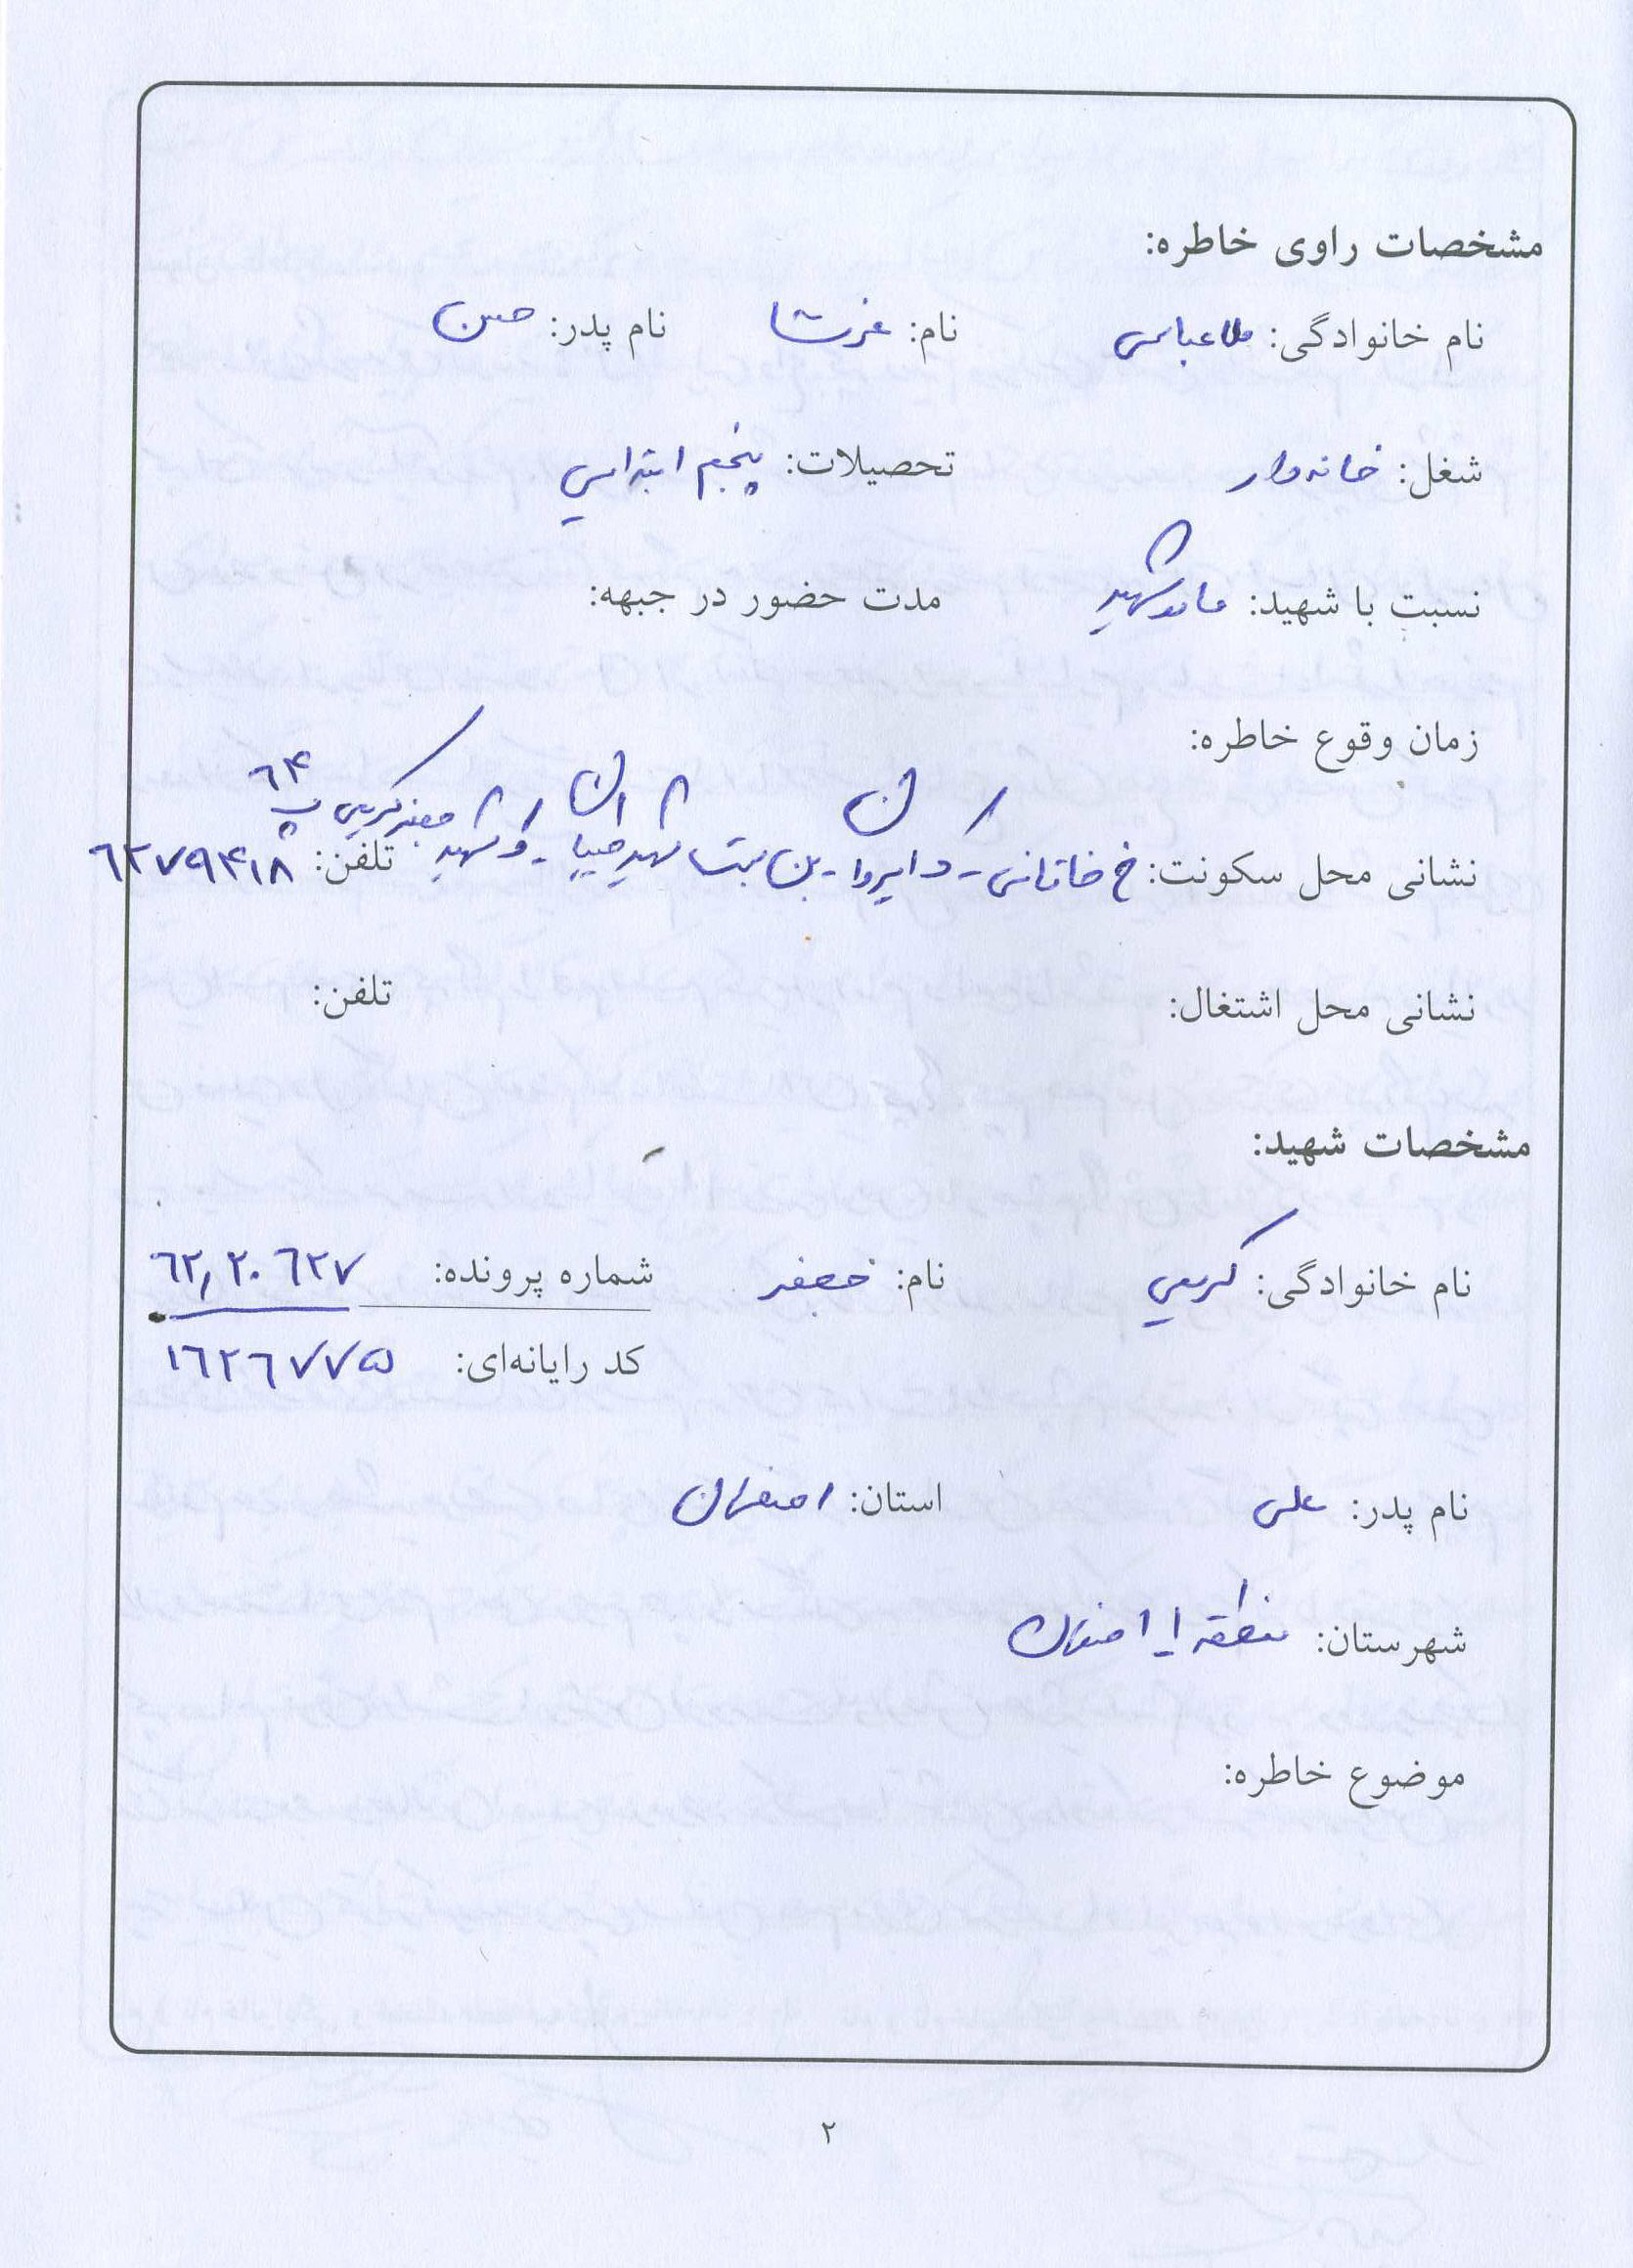 مشخصات راوی خاطره:
نام خانوادگی: ملاعباسی نام: عزت نام پدر: حسن
شغل: خانه‌دار تحصیلات: پنجم ابتدایی
نسبت با شهید: مادر شهید مدت حضور در جبهه:
زمان وقوع خاطره:
نشانی محل سکونت: خ خاقانی - بن بست شهید - شهید جعفر کریمی پ ۶۴ تلفن: ۶۲۷۹۴۱۸
نشانی محل اشتغال: تلفن:
مشخصات شهید:
نام خانوادگی: کریمی نام: جعفر شماره پرونده: ۶۲,۲۰۶۲۷
کد رایانه‌ای: ۱۶۲۶۷۷۵
نام پدر: علی استان: اصفهان
شهرستان: منطقه ۱ اصفهان
موضوع خاطره:
۲